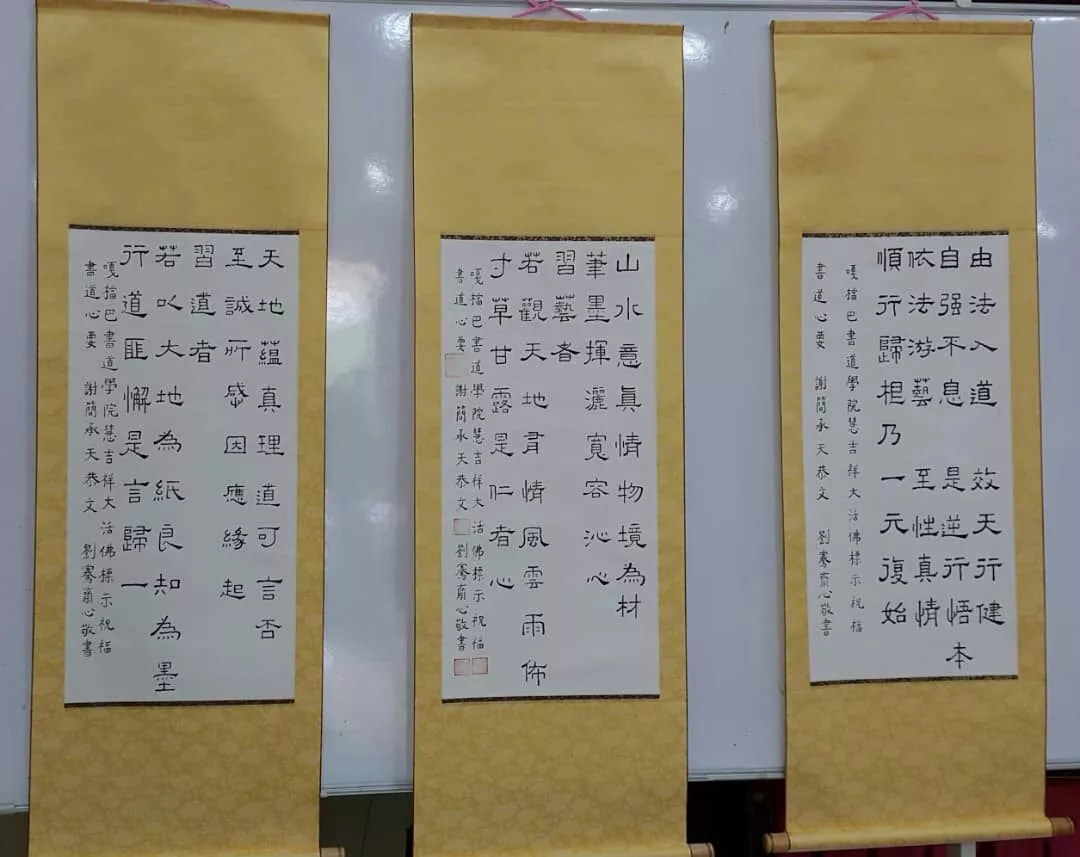 由法入道 效天行健
自强不息 是逆行悟本
依法游藝 至性真情
順行歸根乃一元復始
嘎檔巴書道學院慧吉祥大活佛標示祝福
書道心要 謝簡承天恭文 劉騫齋心敬書
山水意真情物境為材
筆墨揮灑寬容沁心
習藝者
若觀天地有情風雲雨佈
寸草甘露是仁者心
嘎檔巴書道學院慧吉祥大活佛標示祝福
書道心要 謝簡承天恭文 劉騫齋心敬書
天地蘊真理道可言否
至誠所感因應緣起
習道者
若以大地為紙良知為墨
行道匪懈是言歸一
嘎檔巴書道學院慧吉祥大活佛標示祝福
書道心要 謝簡承天恭文 劉騫齋心敬書